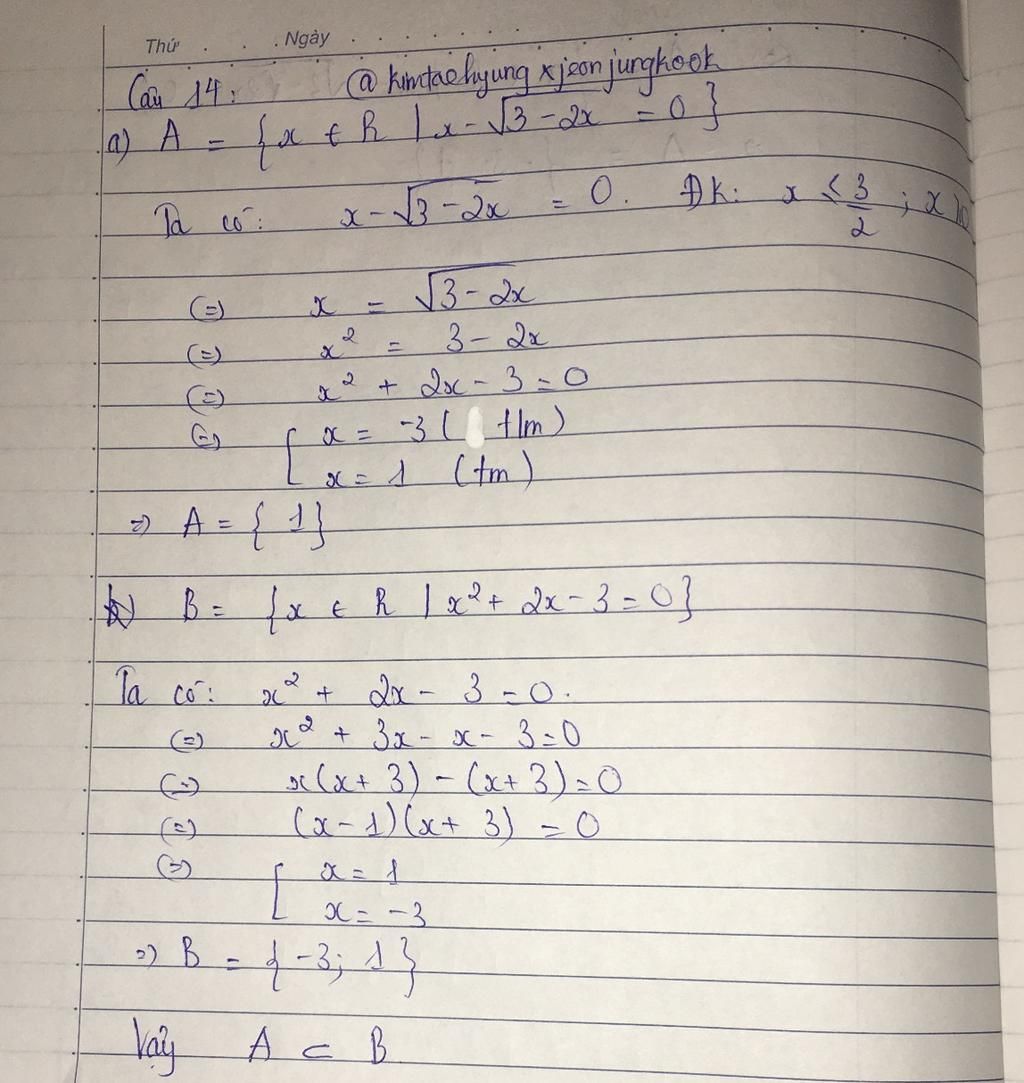 Thứ . . . Ngày . . . . . . . . . .
Câu 14: @kimtaehyungxjeonjungkook
a) A = {x ∈ R | x - √3-2x = 0}
Ta có: x - √3-2x = 0. ĐK: x ≤ 3/2 ; x ≥ 0
(=) x = √3-2x
(=) x² = 3 - 2x
(=) x² + 2x - 3 = 0
(=) [ x = -3 ( tlm)
x = 1 (tm)
=) A = { 1}
b) B = {x ∈ R | x² + 2x - 3 = 0}
Ta có: x² + 2x - 3 = 0.
(=) x² + 3x - x - 3 = 0
(=) x(x + 3) - (x + 3) = 0
(=) (x - 1)(x + 3) = 0
(=) [ x = 1
x = -3
=) B = {-3; 1}
Vậy A ⊂ B